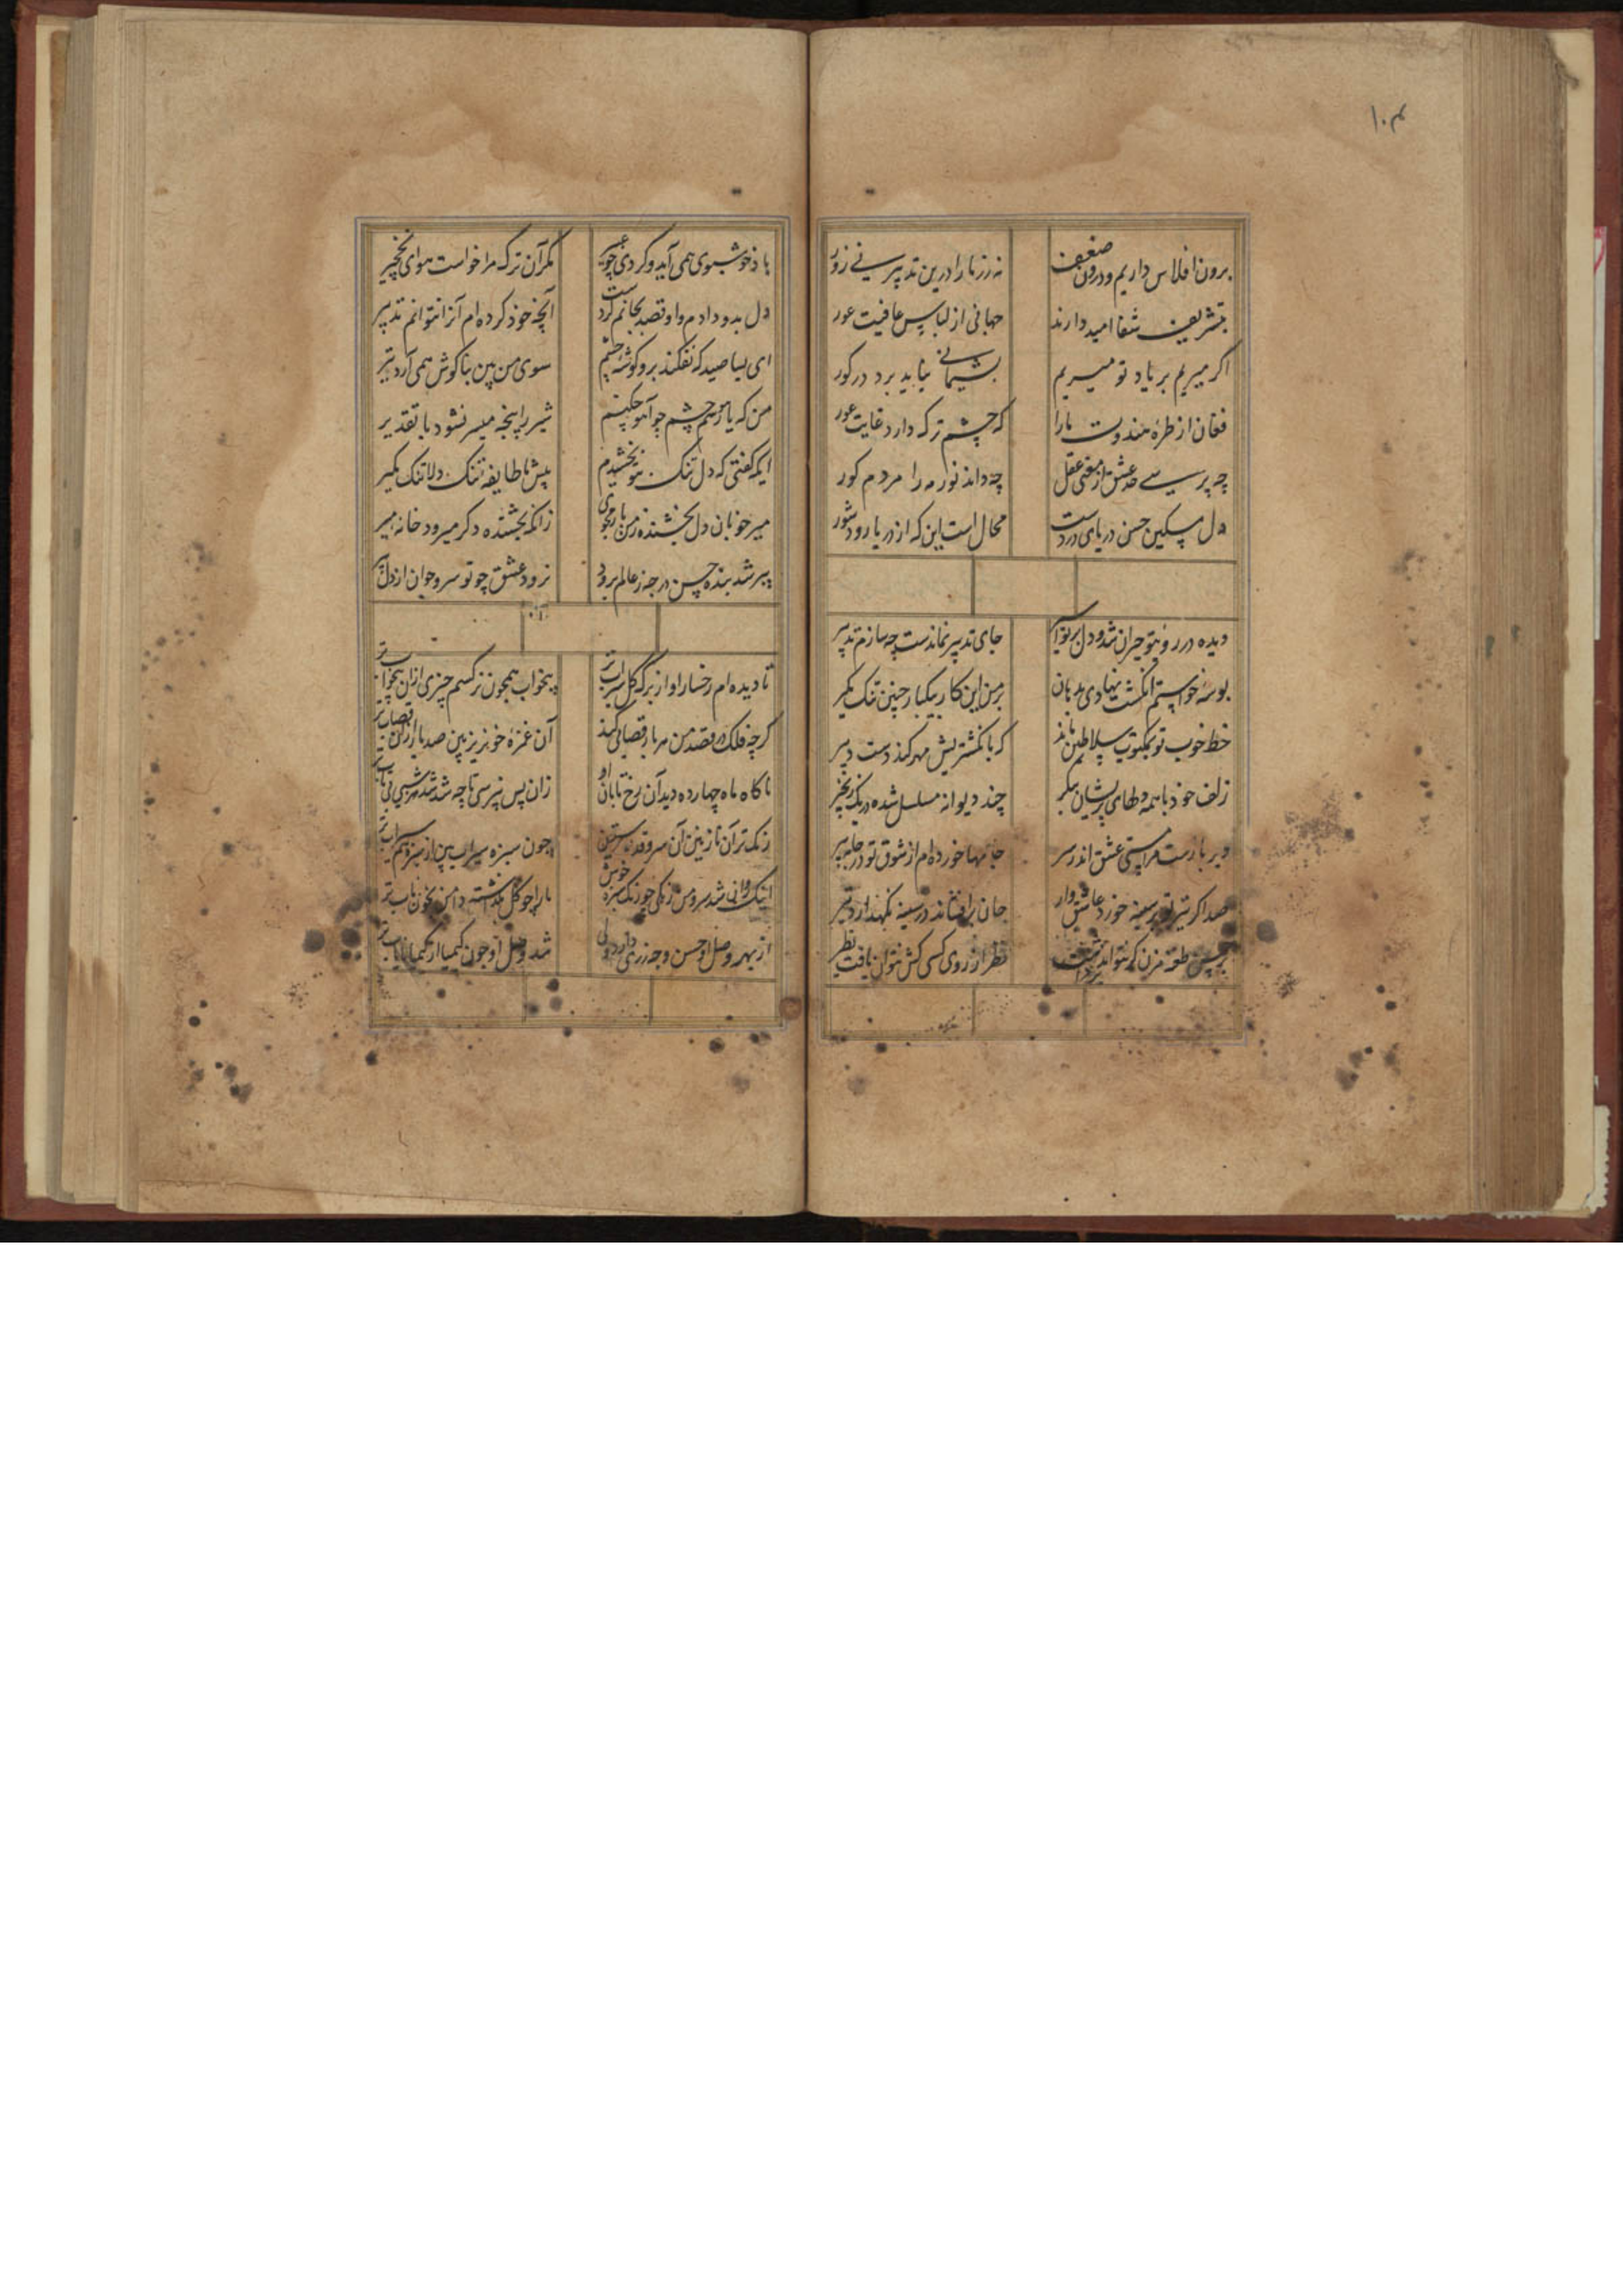 ۱۰۴
برون افلاس داریم و درون ضعف نه زر ما را درین تدبیر نی زور
بتشریف شفا امید دارند جهانی از لباس عافیت عور
اکر میریم بر یاد تو میریم پشیمانی نباید برد در کور
فغان از طرهٔ هندوت ما را که چشم ترک دارد غایت عور
چه پرسی حد عشق از مفتی عقل چه داند نور مه را مردم کور
دل مسکین حسن دریای دردست محال است این که از دریا رود شور
دیده در روی تو حیران شد و دل بر تو اسیر جای تدبیر نماندست چه سازم تدبیر
بوسهٔ خواستم انکشت نهادی بدهان بر من این کار بیکبار چنین تنک مکیر
خط خوب تو بمکتوب سلاطین ماند که بانکشتریش مهر کند دست دبیر
زلف خود با همه دلهای پریشان بنکر چند دیوانه مسلسل شده در یک زنجیر
دیر بازست مرا مستی عشق اندر سر جامها خورده‌ام از شوق تو در
صد اکر تیر تو بر سینه خورد عاشق وار جان برافشاند و در سینه نکهدارد تیر
بر حسن طعنه مزن کر نتواند نظر از روی کسی کش نتوان یافت نظیر
باد خوشبوی همی آید و کردی چو عبیر مکر آن ترک مرا خواست هوای نخچیر
دل بدو دادم و او قصد بجانم کردست آنچه خود کرده‌ام آنرا نتوانم تدبیر
ای بسا صید که نفکند برو کوشهٔ چشم سوی من بین بنا کوش همی آرد تیر
من که یا زهیم چشم چو آهو چکنم شیر را پنجه میسر نشود با تقدیر
ایکه کفتی که دل تنک بتو بخشیدم پیش ما طایفه تنک دلا تنک مکیر
میر خوبان دل بخشنده ز من باز مجوی زانکه بخشنده دکر میرود خانه میر
پیر شد بنده حسن در جه ز عالم برود نرود عشق چو تو سرو جوان از دل پیر
تا دیده‌ام رخسار او از برک کل سیراب تر بیخواب همچون نرکسم چیزی ازان بیخواب تر
کرچه فلک در قصد من هر بار قصابی کند آن غمزهٔ خونریز بین صد بار ازان قصاب تر
ناکاه ماه چهارده دید آن رخ تابان او زان پس نپرسی تا چه شد شد هر شبی بی تاب تر
رنک تر آن نازنین آن سرو قد سبزین چون سبزه سیراب بین از سبزه هم سیراب تر
اینک روانی شد سرو من رنکی چو رنک سبزه خوش ما را چو کل بکذاشته دامن بخون ناب تر
از بهر وصل او حسن وجه زری دارد ولی شد وصل او چون کیمیا از کیمیا نایاب تر